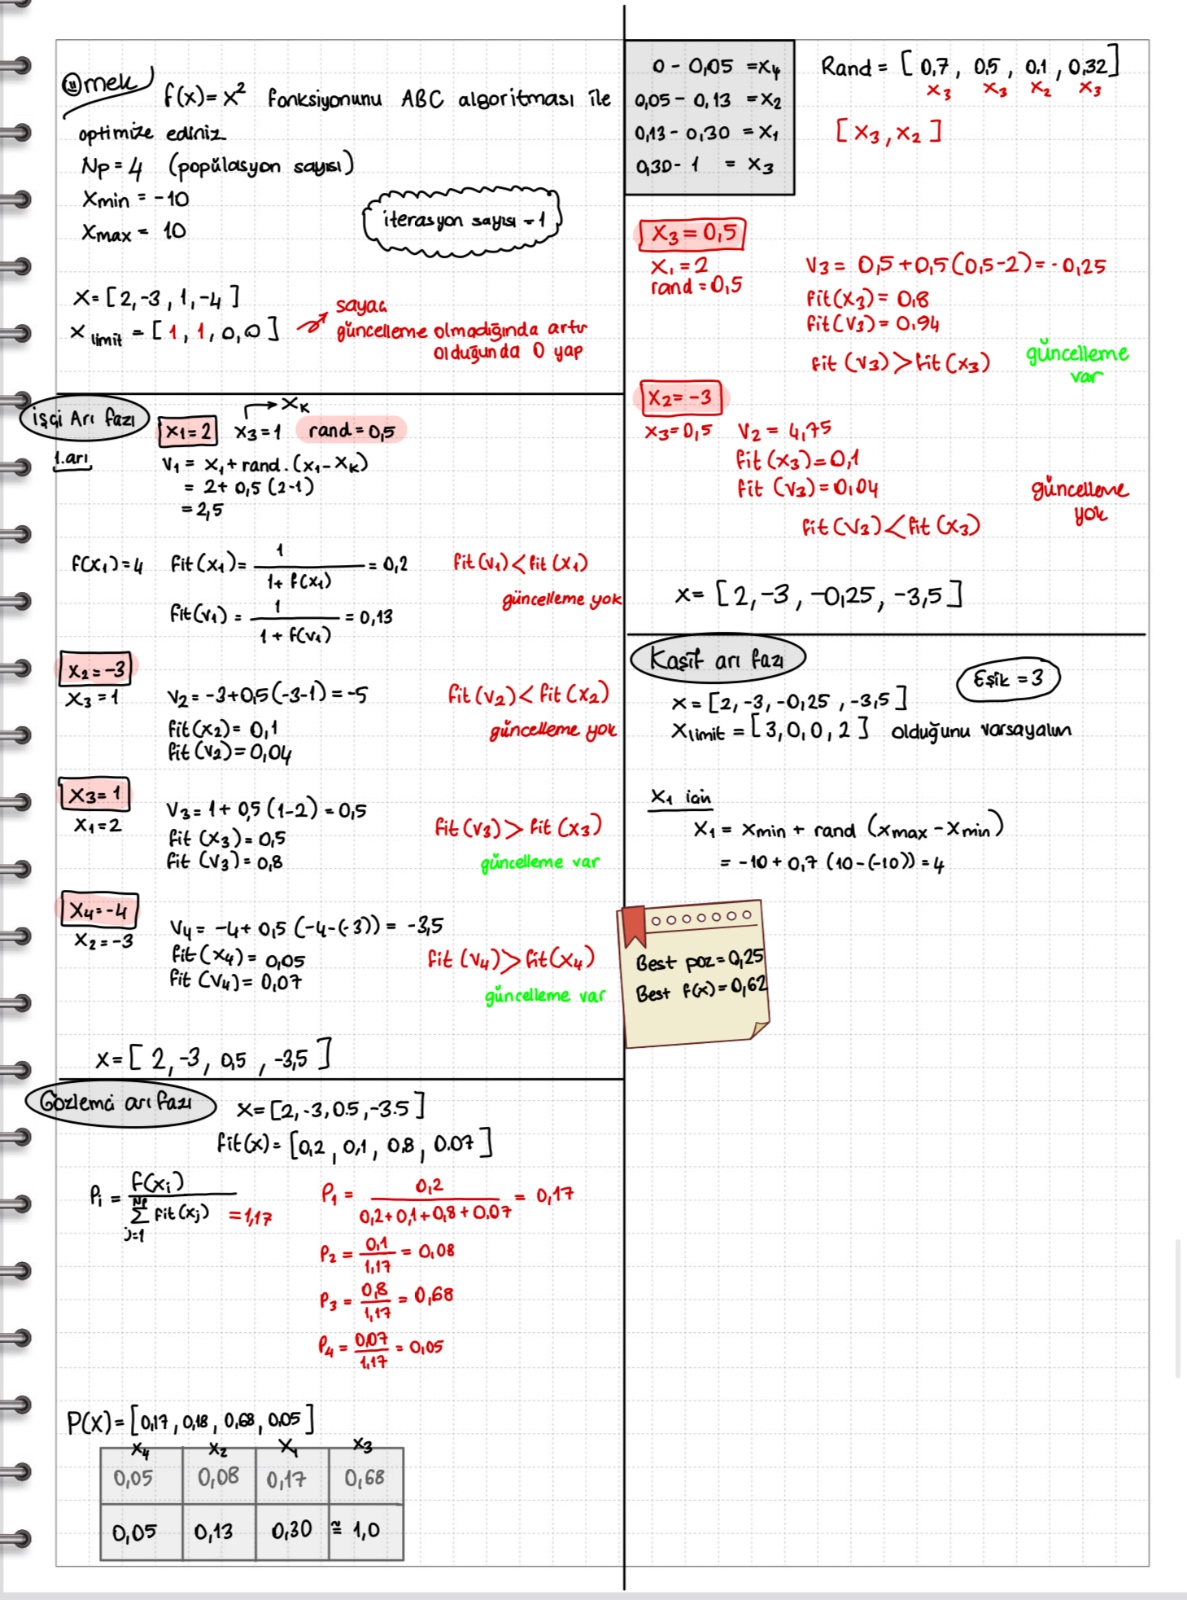 Örnek f(x)= x² fonksiyonunu ABC algoritması ile
optimize ediniz
Np=4 (popülasyon sayısı)
Xmin = -10
Xmax = 10
iterasyon sayısı = 1
X=[2,-3,1,-4]
X limit = [1,1,0,0]
sayaç
güncelleme olmadığında artır
olduğunda 0 yap
işçi Arı fazı
1.arı
X1=2 X3=1 → XK rand=0,5
V1 = X1+rand.(X1-XK)
= 2+0,5(2-1)
=2,5
f(X1)=4 fit(X1)= 1 / 1+f(X1) = 0,2 fit(V1)<fit(X1)
güncelleme yok
fit(V1) = 1 / 1+f(V1) = 0,13
X2=-3
X3=1 V2=-3+0,5(-3-1)=-5 fit(V2)<fit(X2)
fit(X2)= 0,1 güncelleme yok
fit(V2)=0,04
X3=1
X1=2 V3=1+0,5(1-2)=0,5
fit(X3)=0,5 fit(V3)>fit(X3)
fit(V3)=0,8 güncelleme var
X4=-4
X2=-3 V4=-4+0,5(-4-(-3))= -3,5
fit(X4)= 0,05 fit(V4)>fit(X4)
fit(V4)=0,07 güncelleme var
X=[2,-3,0,5,-3,5]
Gözlemci arı fazı X=[2,-3,0.5,-3.5]
fit(x)=[0,2,0,1,0.8,0.07]
Pi = f(Xi) / Np Σ j=1 fit(Xj) =1,17
P1 = 0,2 / 0,2+0,1+0,8+0.07 = 0,17
P2 = 0,1 / 1,17 = 0,08
P3 = 0,8 / 1,17 = 0,68
P4 = 0,07 / 1,17 = 0,05
P(X)=[0,17,0,18,0,68,0,05]
X4 X2 X1 X3
0,05 0,08 0,17 0,68
0,05 0,13 0,30 ≅ 1,0
0 - 0,05 =X4
0,05 - 0,13 =X2
0,13 - 0,30 =X1
0,30 - 1 = X3
Rand = [0,7, 0.5, 0.1, 0,32]
X3 X3 X2 X3
[X3,X2]
X3=0,5
X1=2
rand=0,5
V3= 0,5+0,5(0,5-2)=-0,25
fit(X3)= 0,8
fit(V3)= 0.94
fit(V3)>fit(X3) güncelleme
var
X2=-3
X3=0,5 V2 = 4,75
fit(X3)=0,1
fit(V3)=0.04
güncelleme
yok
fit(V3)<fit(X3)
X=[2,-3,-0,25,-3,5]
Kaşif arı fazı
Eşik=3
X=[2,-3,-0,25,-3,5]
Xlimit=[3,0,0,2] olduğunu varsayalım
X1 için
X1 = Xmin + rand (Xmax-Xmin)
= -10+0,7 (10-(-10))=4
Best poz=0,25
Best f(x)=0,62